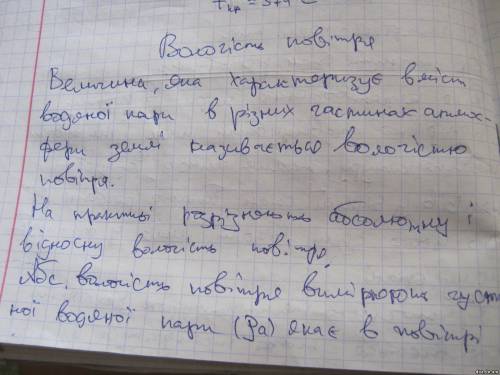 tкр = 374 °C
Вологість повітря
Величина, яка характеризує вміст
водяної пари в різних частинах атмос-
фери землі називається вологістю
повітря.
На практиці розрізняють абсолютну і
відносну вологість повітря
Абс. вологість повітря вимірюють густ
ної водяної пари (ρа) якає в повітрі